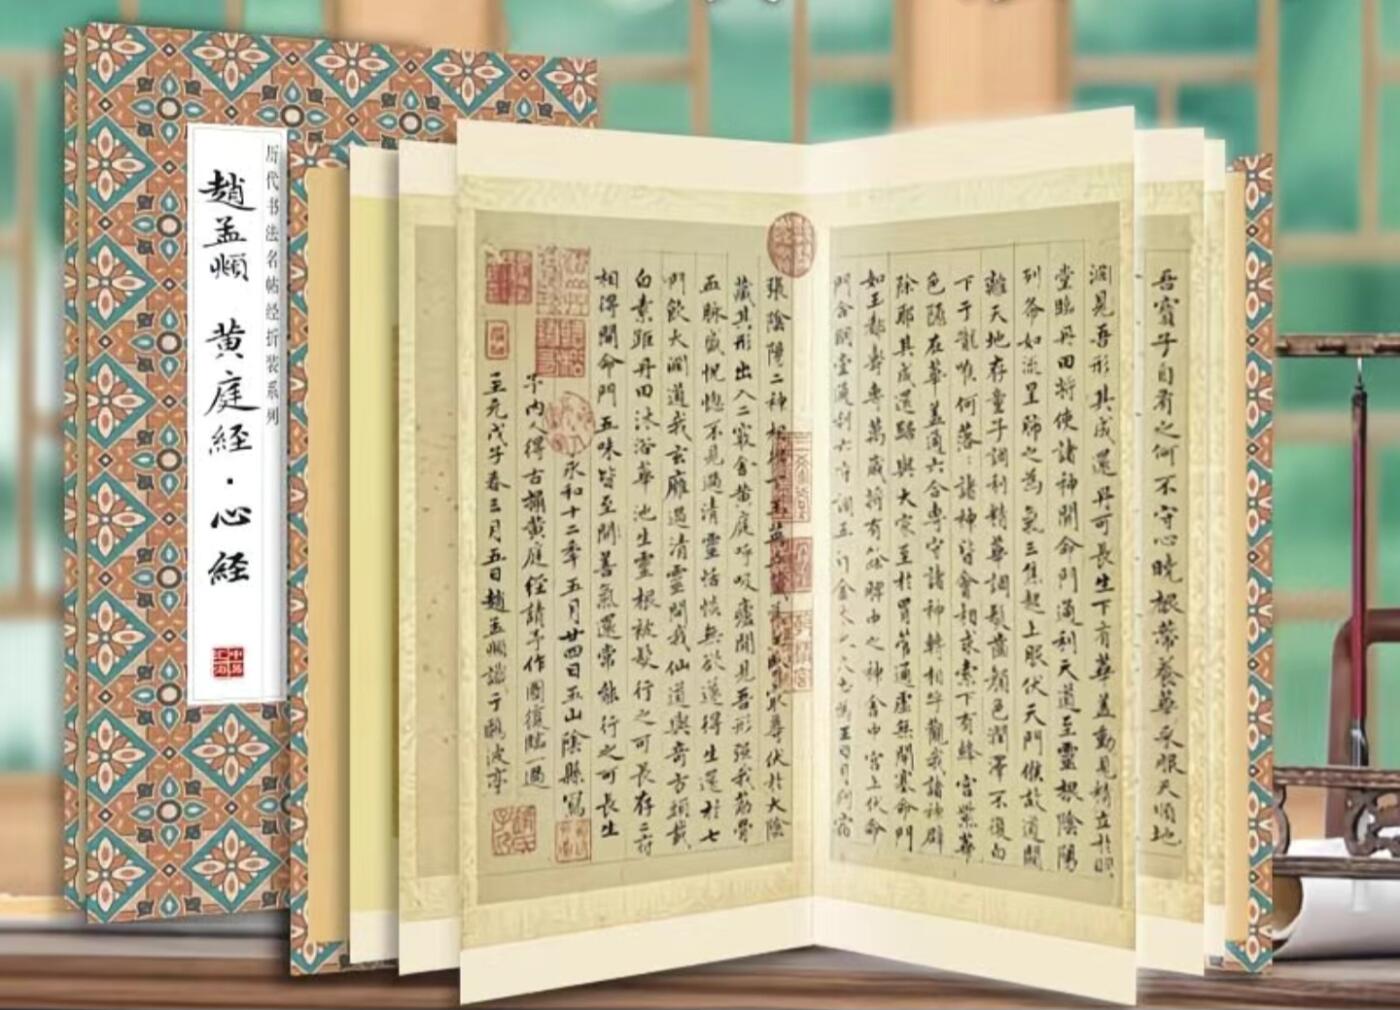 历代书法名帖经折装系列
趙孟頫 黄庭経·心経
吾實子自有之何不守心曉根蒂養華采服天順地
洞見吾形其成還丹可長生下有華蓋動見精立於明
堂臨丹田將使諸神開命門通利天道至靈根陰陽
列布如流星肺之為氣三焦起上服伏天門候故道闚
離天地存童子調利精華調髮齒顏色潤澤不復白
下于嚨唯何落〻諸神皆會相求索下有絳宮紫華
色隱在華蓋通六合專守諸神轉相呼觀我諸神辟
除耶其成還歸與大家至於胃管通虛無閉塞命門
如玉都壽專萬歲將有餘脾中之神舍中宮上伏命
門合明堂通利六府調五行金木水火土為王日月列宿
張陰陽二神相得下玉英五藏為主腎最尊伏於大陰
藏其形出入二竅舍黃庭呼吸廬間見吾形強我筋骨
血脈盛恍惚不見過清靈恬惔無欲遂得生還於七
門飲大淵道我玄廱過清靈問我仙道與奇方頭載
白素距丹田沐浴華池生靈根被髮行之可長存二府
相得開命門五味皆至開善氣還常能行之可長生
永和十二年五月廿四日五山陰縣寫
予內人得古搨黃庭経請予作圖復臨一過
至元戊子春三月五日趙孟頫識于鷗波亭